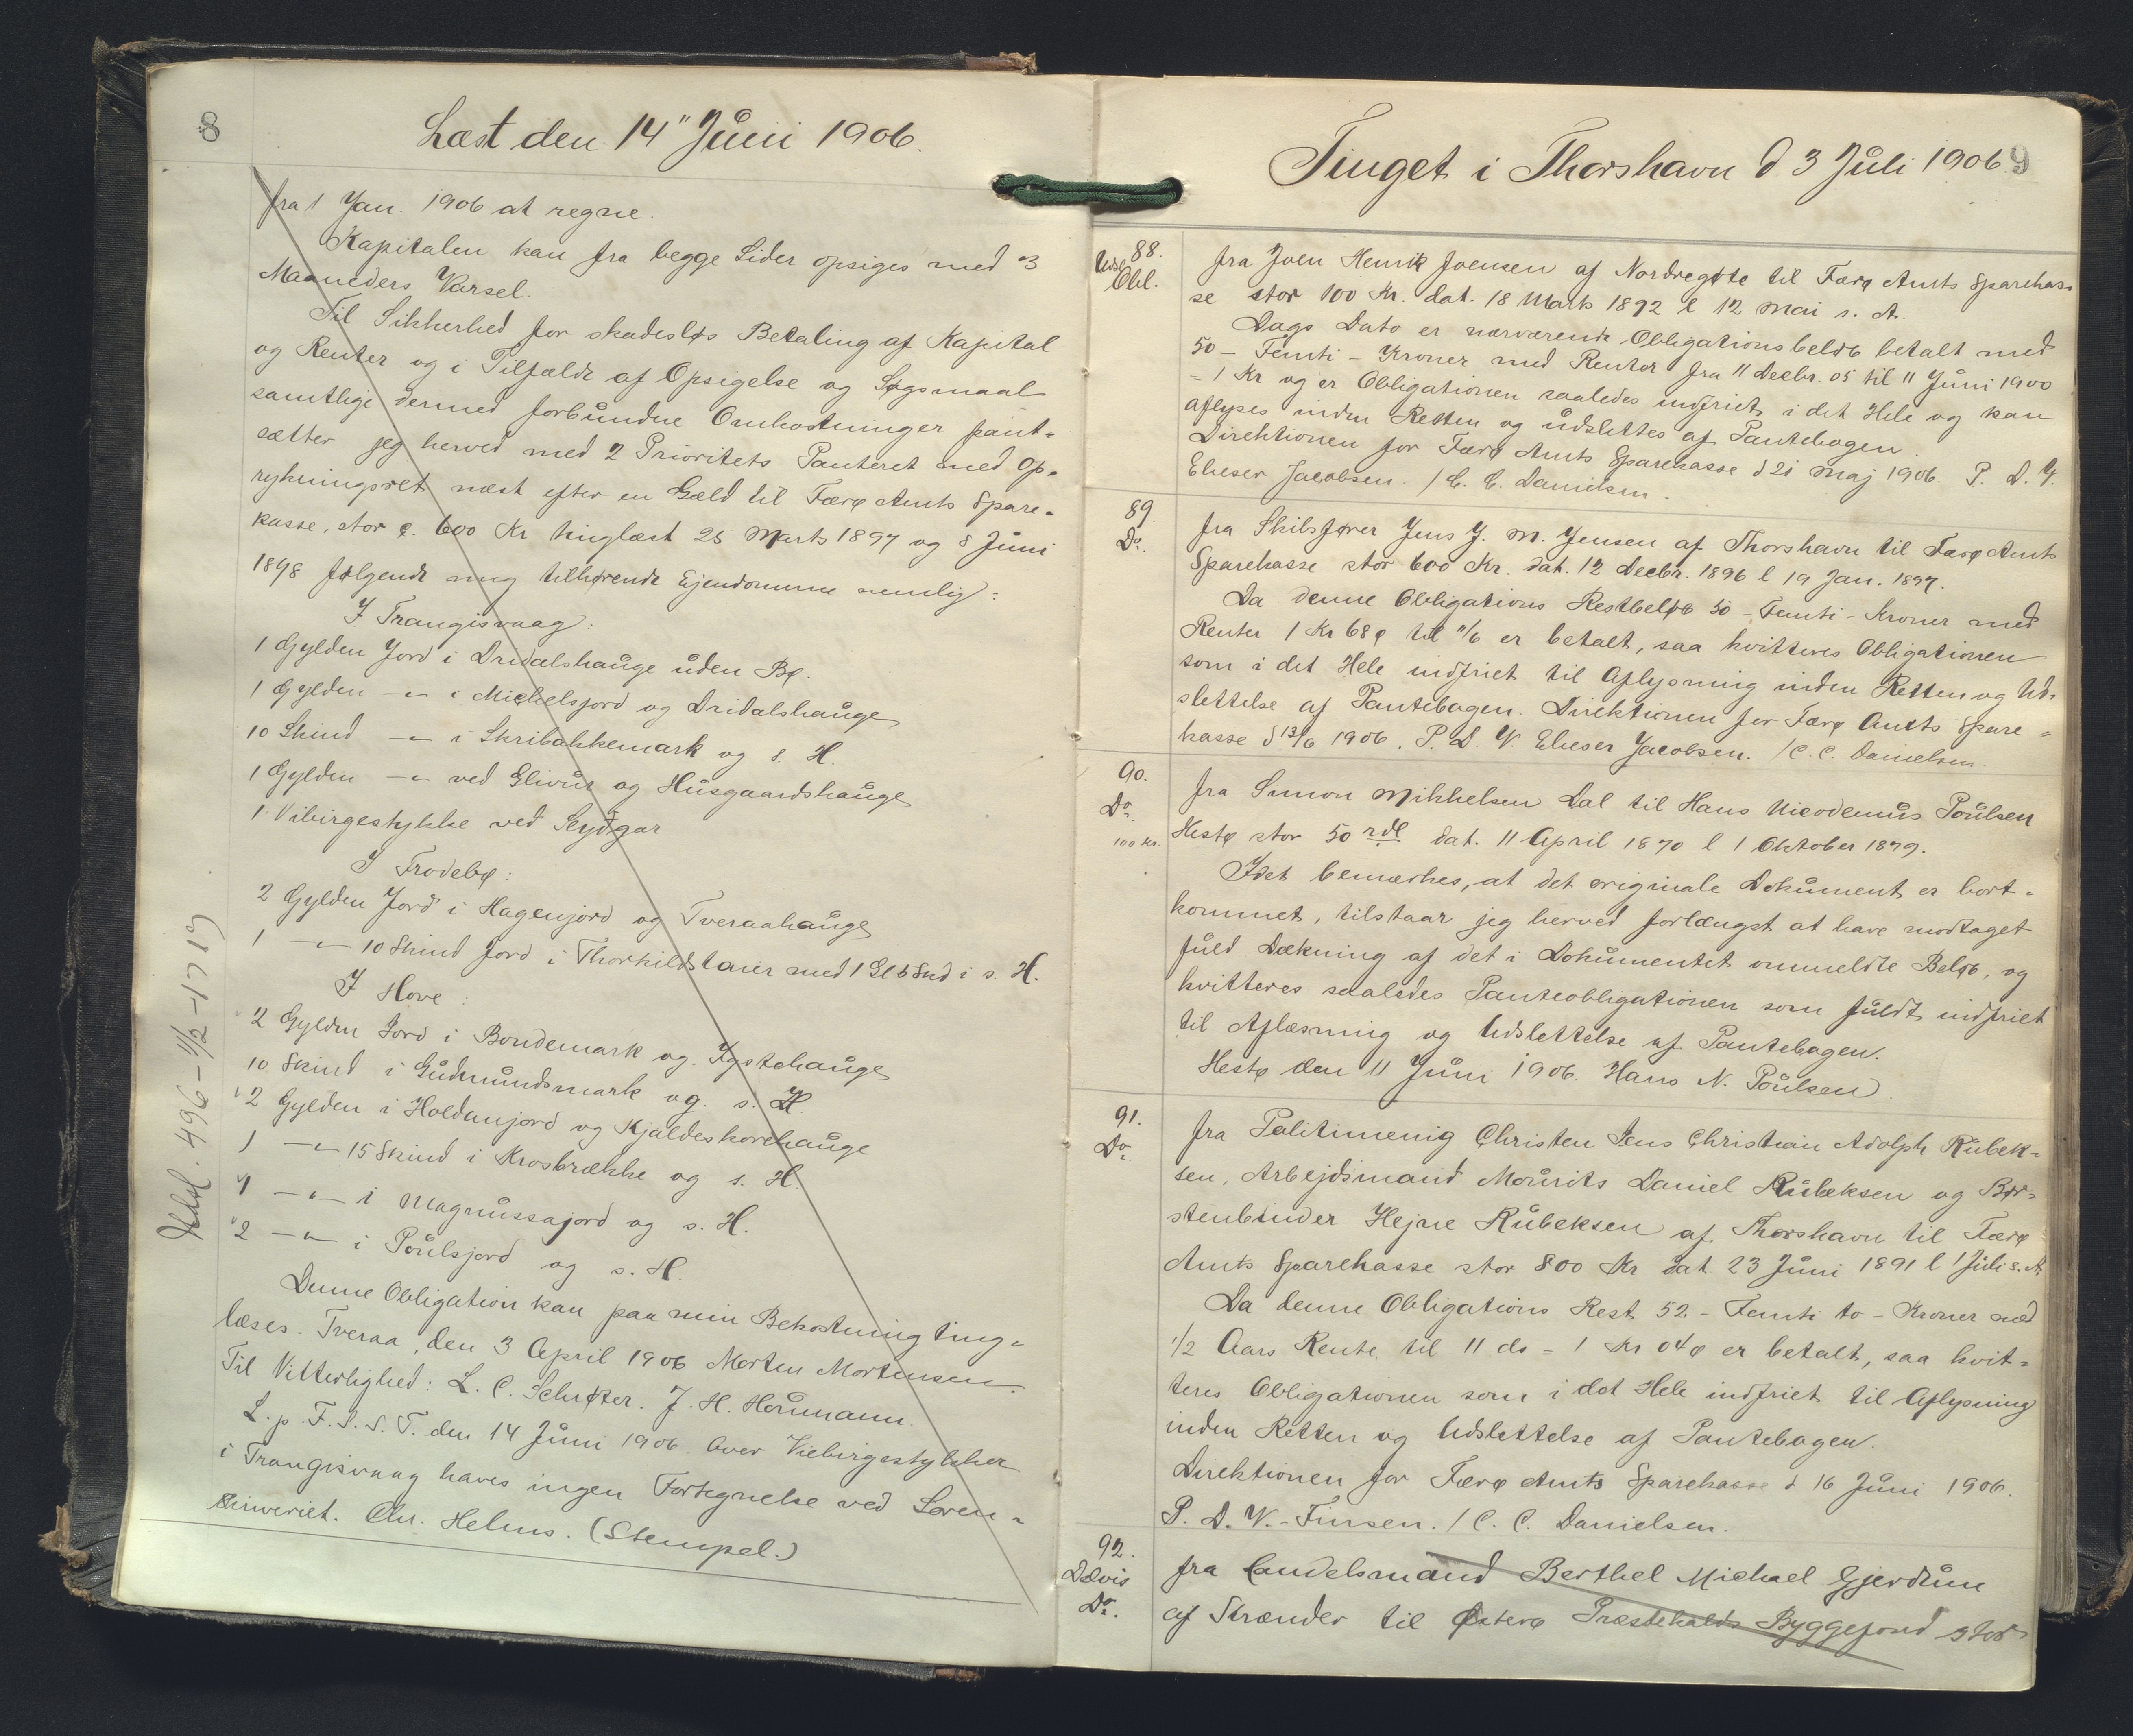 8
Læst den 14" Juni 1906.
fra 1 Jan. 1906 at regne.
Kapitalen kan fra begge Sider opsiges med 3
Maaneders Varsel.
Til Sikkerhed for skadesløs Betaling af Kapital
og Renter og i Tilfælde af Opsigelse og Søgsmaal
samtlige dermed forbundne Omkostninger pant-
sætter jeg herved med 2 Prioritets Panteret med Op-
rykningsret næst efter en Gæld til Færø Amts Spare-
kasse, stor c. 600 Kr tinglæst 25 Marts 1897 og 8 Juni
1898 følgende mig tilhørende Ejendomme nemlig:
I Trangisvaag:
1 Gylden Jord i Dridalshauge uden Bø.
1 Gylden -"- i Michelsjord og Dridalshauge
10 Skind -"- i Skribakkemark og s. H.
1 Gylden -"- ved Glivur og Husgaardshauge
1 Vibirgestykke ved Seydgar
I Frodebø:
2 Gylden Jord i Hagenjord og Tveraahauge
1 -"- 10 Skind Jord i Thorkildstarer med 1 Gl 6 Snd i s. H.
I Hove:
2 Gylden Jord i Bondemark og Igstehauge
10 Skind i Gudmundsmark og s. H.
2 Gylden i Holdanjord og Kjaldeskorehauge
1 -"- 15 Skind i Krosbrekke og s. H.
1 -"- i Magnussajord og s. H.
2 -"- i Poulsjord og s. H.
Denne Obligation kan paa min Bekostning ting-
læses. Tveraa, den 3 April 1906 Morten Mortensen.
Til Vitterlighed: L. C. Schrøter. J. H. Houmann.
L. p. F. S. S. T. den 14 Juni 1906. Over Viebirgestykker
i Trangisvaag haves ingen Fortegnelse ved Soren-
skriveriet. Chr. Helms. (Stempel.)
496-11/2-1719
Tinget i Thorshavn d 3 Juli 1906.
9
88.
Udsl
Obl.
fra Joen Henrik Joensen af Nordregøte til Færø Amts Sparekas-
se stor 100 Kr. dat. 18 Marts 1892 l 12 Mai s. A.
Dags Dato er nærværende Obligationsbeløb betalt med
50 - Femti - Kroner med Renter fra 11 Decbr. 05 til 11 Juni 1900
= 1 Kr og er Obligationen saaledes indfriet i det Hele og kan
aflyses inden Retten og udslettes af Pantebogen.
Direktionen for Færø Amts Sparekasse d 21 Maj 1906. P. D. V.
Elieser Jacobsen. / C. C. Danielsen.
89.
Do.
fra Skibsfører Jens J. M. Jensen af Thorshavn til Færø Amts
Sparekasse stor 600 Kr. dat. 12 Decbr. 1896 l 19 Jan. 1897.
Da denne Obligations Restbeløb 50 - Femti - Kroner med
Renter 1 Kr 68 ø til 11/6 er betalt, saa kvitteres Obligationen
som i det Hele indfriet til Aflysning inden Retten og Ud-
slettelse af Pantebogen. Direktionen for Færø Amts Spare-
kasse d 13/6 1906. P. D. V. Elieser Jacobsen. / C. C. Danielsen.
90.
Do.
100 Kr.
fra Simon Mikkelsen Dal til Hans Nicodemus Poulsen
Hestø stor 50 rdl dat. 11 April 1870 l 1 Oktober 1879.
Idet bemærkes, at det originale Dokument er bort-
kommet, tilstaar jeg herved forlængst at have modtaget
fuld Dækning af det i Dokumentet ommeldte Beløb, og
kvitteres saaledes Panteobligationen som fuldt indfriet
til Aflæsning og Udslettelse af Pantebogen.
Hestø den 11 Juni 1906. Hans N. Poulsen.
91.
Do.
fra Politimenig Christen Jens Christian Adolph Rubek-
sen, Arbejdsmand Mourits Daniel Rubeksen og Bør-
stenbinder Hejne Rubeksen af Thorshavn til Færø
Amts Sparekasse stor 800 Kr dat 23 Juni 1891 l 1 Juli s. A.
Da denne Obligations Rest 52 - Femti to - Kroner med
1/2 Aars Rente til 11 ds = 1 Kr 04 ø er betalt, saa kvit-
teres Obligationen som i det Hele indfriet til Aflysning
inden Retten og Udslettelse af Pantebogen.
Direktionen for Færø Amts Sparekasse d 16 Juni 1906.
P. D. V. Finsen. / C. C. Danielsen.
92.
Delvis
Do.
fra Handelsmand Berthel Michael Gjerdum
af Strænder til Østerø Præstekalds Byggefond stor